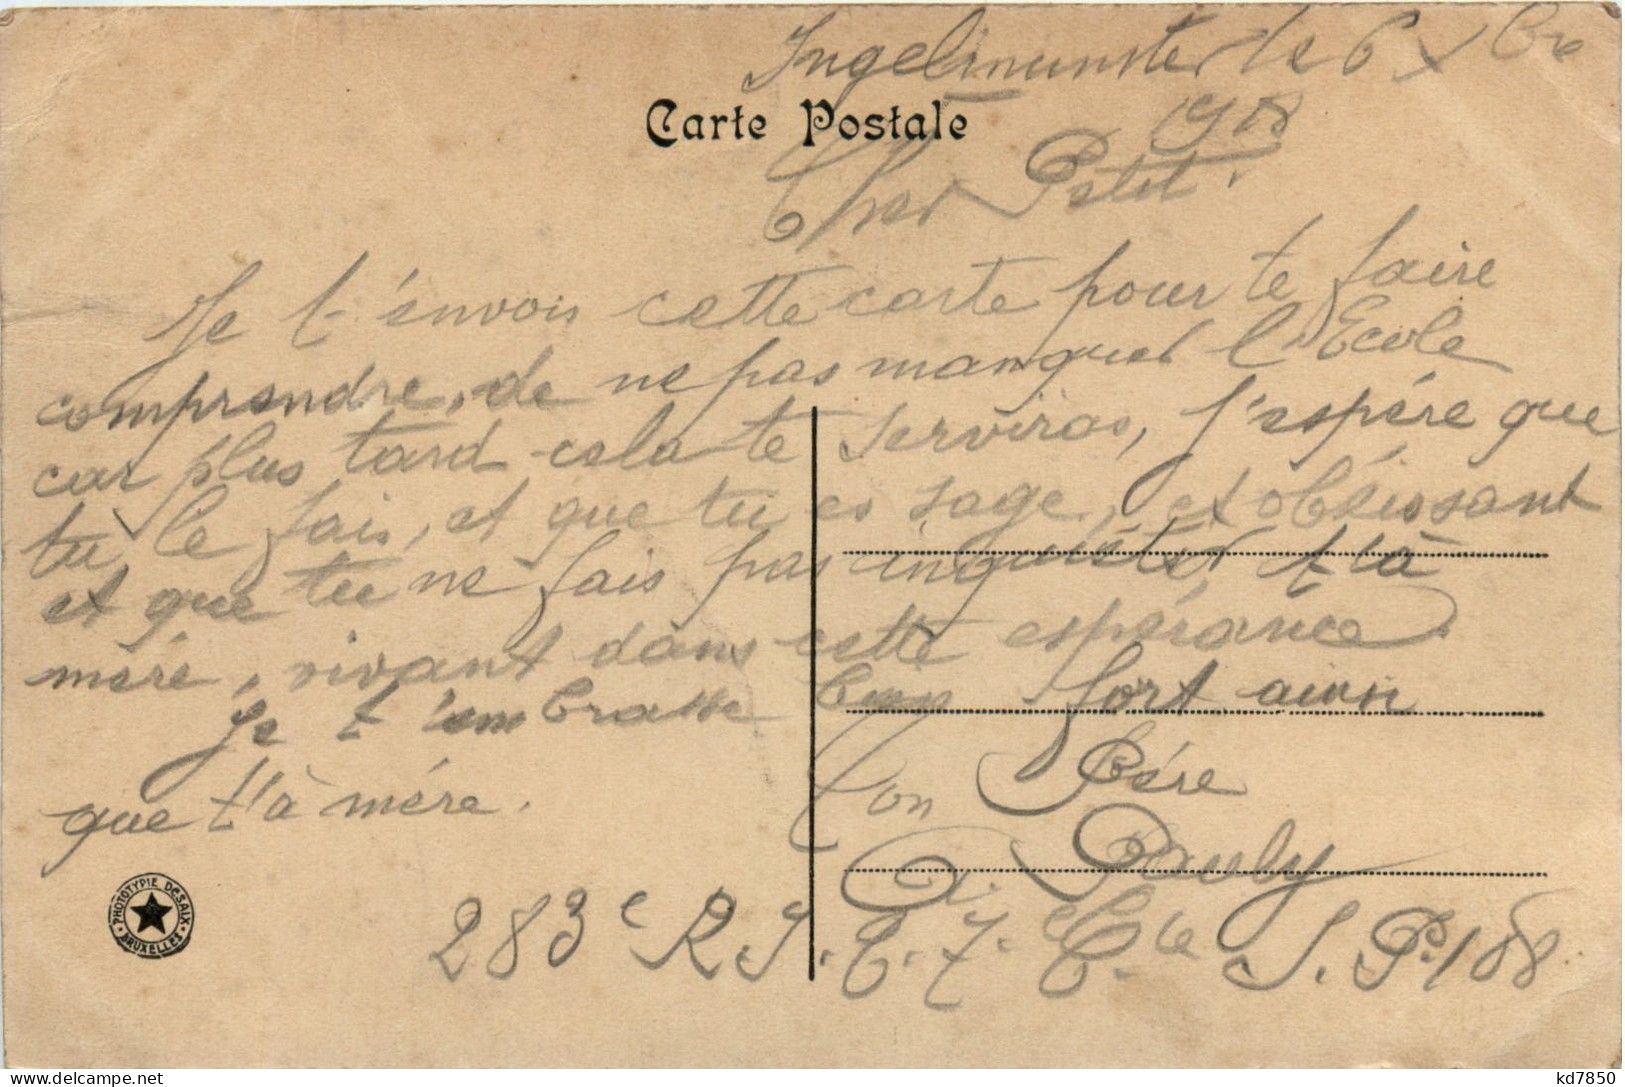 Ingelmunster le 6 Xbre
1918
Carte Postale
Cher Petit.
Je t'envois cette carte pour te faire
comprendre, de ne pas manquer l'Ecole
car plus tard cela te serviras, J'espére que
tu le fais, et que tu es sage, et obéissant
et que tu ne fais pas inquiéter t'a
mére, vivant dans cette espérance.
Je t'embrasse bien fort ainsi
que t'a mére.
Ton Pére
A. Pauly
283e R. I. T. 7e Cie S. P. 188
PHOTOTYPIE DESAIX
BRUXELLES
kd7850